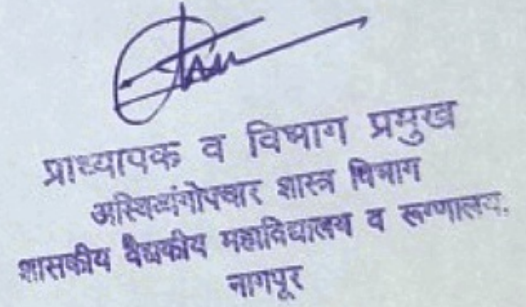 प्राध्यापक व विभाग प्रमुख
अस्थिव्यंगोपचार शास्त्र विभाग
शासकीय वैद्यकीय महाविद्यालय व रूग्णालय.
नागपूर